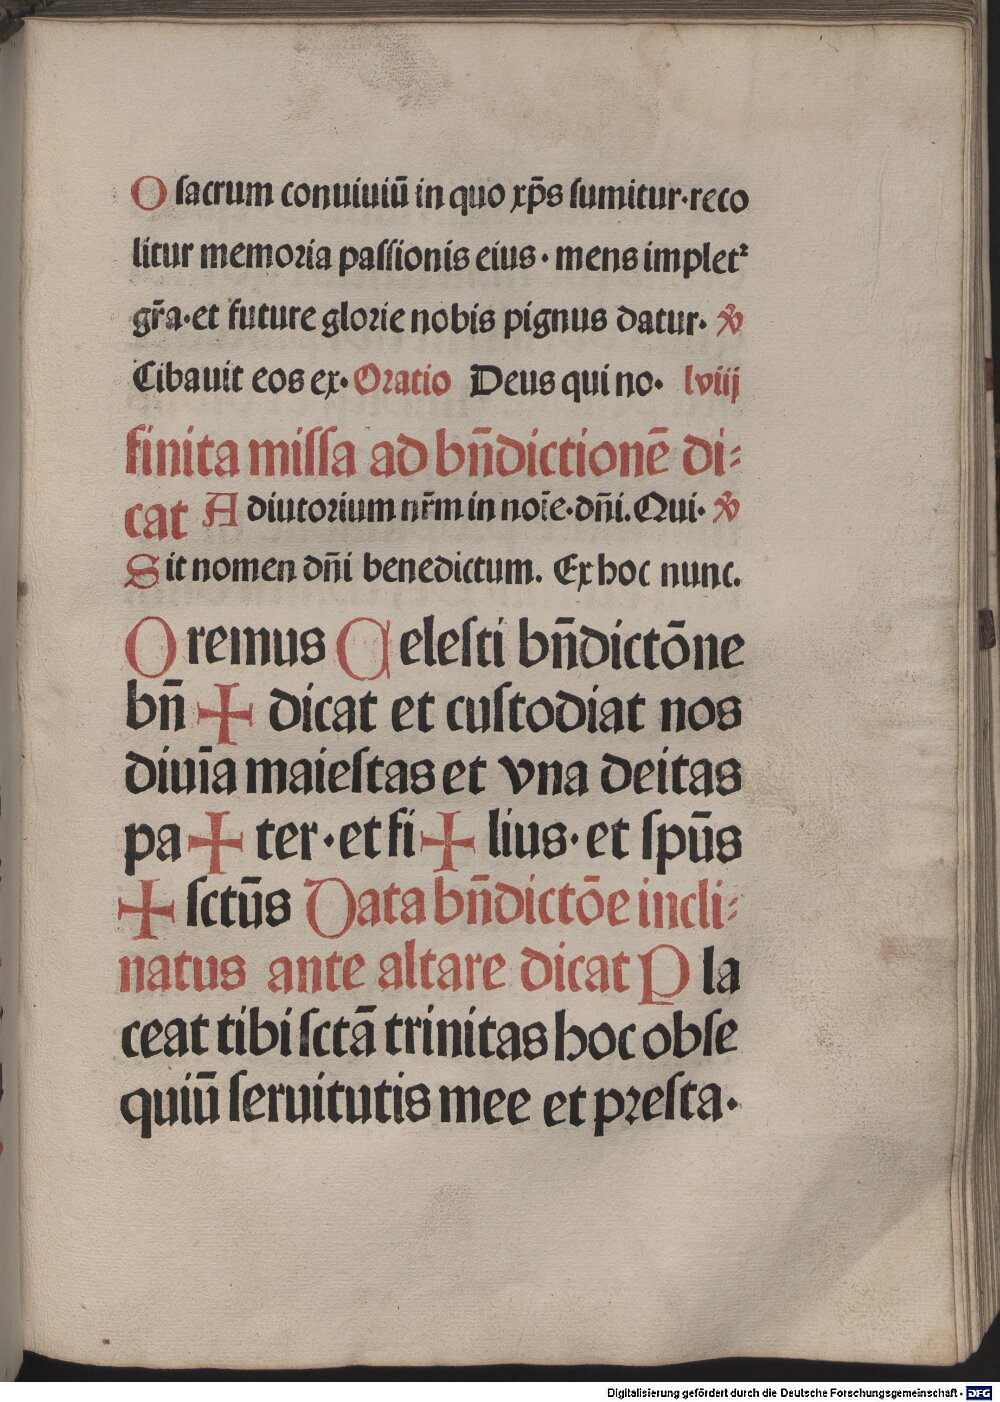 O sacrum conuiuiū in quo xp̄s sumitur·reco
litur memoria passionis eius·mens implet᷑
gr̄a·et future glorie nobis pignus datur· ℣
Cibauit eos ex·Oratio Deus qui no· lviij
finita missa ad bn̄dictionē di⸗
cat Adiutorium nr̄m in noīe·dn̄i.Qui· ℣
Sit nomen dn̄i benedictum. Ex hoc nunc.
Oremus Celesti bn̄dictōne
bn̄ ✠ dicat et custodiat nos
diuīa maiestas et vna deitas
pa ✠ ter·et fi ✠ lius·et spūs
✠ sctūs Data bn̄dictōe incli⸗
natus ante altare dicat Pla
ceat tibi sctā trinitas hoc obse
quiū seruitutis mee et presta·
Digitalisierung gefördert durch die Deutsche Forschungsgemeinschaft - DFG